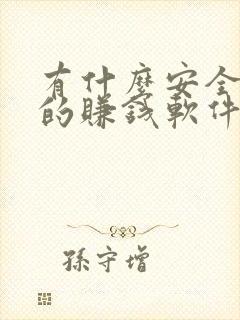 有什麼安全
的賺錢軟件
孫守增